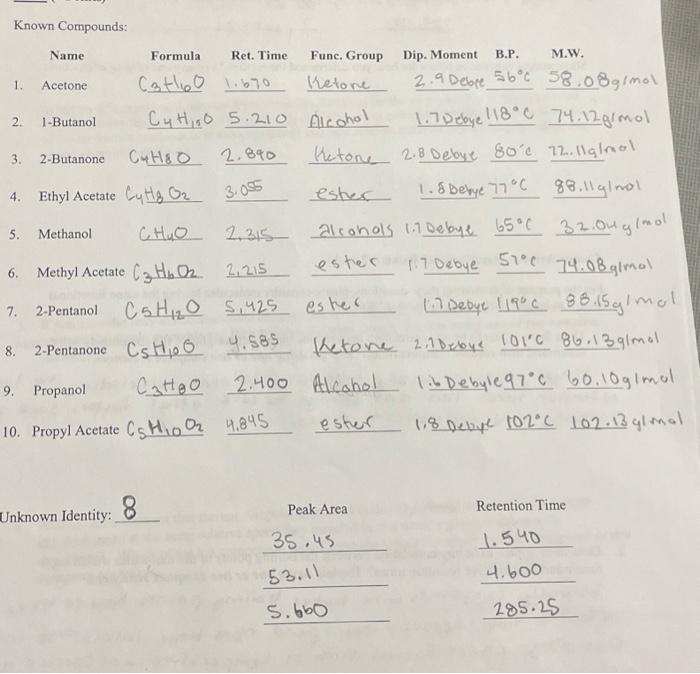 Known Compounds:
Name Formula Ret. Time Func. Group Dip. Moment B.P. M.W.
1. Acetone C3H6O 1.670 Ketone 2.9 Debye 56°C 58.08g/mol
2. 1-Butanol C4H10O 5.210 Alcohol 1.7 Debye 118°C 74.12g/mol
3. 2-Butanone C4H8O 2.890 Ketone 2.8 Debye 80°C 72.11g/mol
4. Ethyl Acetate C4H8O2 3.055 ester 1.8 Debye 77°C 88.11g/mol
5. Methanol CH4O 2,315 alcohols 1.7 Debye 65°C 32.04g/mol
6. Methyl Acetate C3H6O2 2,215 ester 1.7 Debye 57°C 74.08g/mol
7. 2-Pentanol C5H12O 5,425 ester 1.7 Debye 119°C 88.15g/mol
8. 2-Pentanone C5H10O 4.585 Ketone 2.7 Debye 101°C 86.13g/mol
9. Propanol C3H8O 2.400 Alcohol 1.6 Debyle 97°C 60.10g/mol
10. Propyl Acetate C5H10O2 4,845 ester 1,8 Debye 102°C 102.13g/mol
Unknown Identity: 8 Peak Area Retention Time
35.45 1.540
53.11 4.600
5.660 285.25